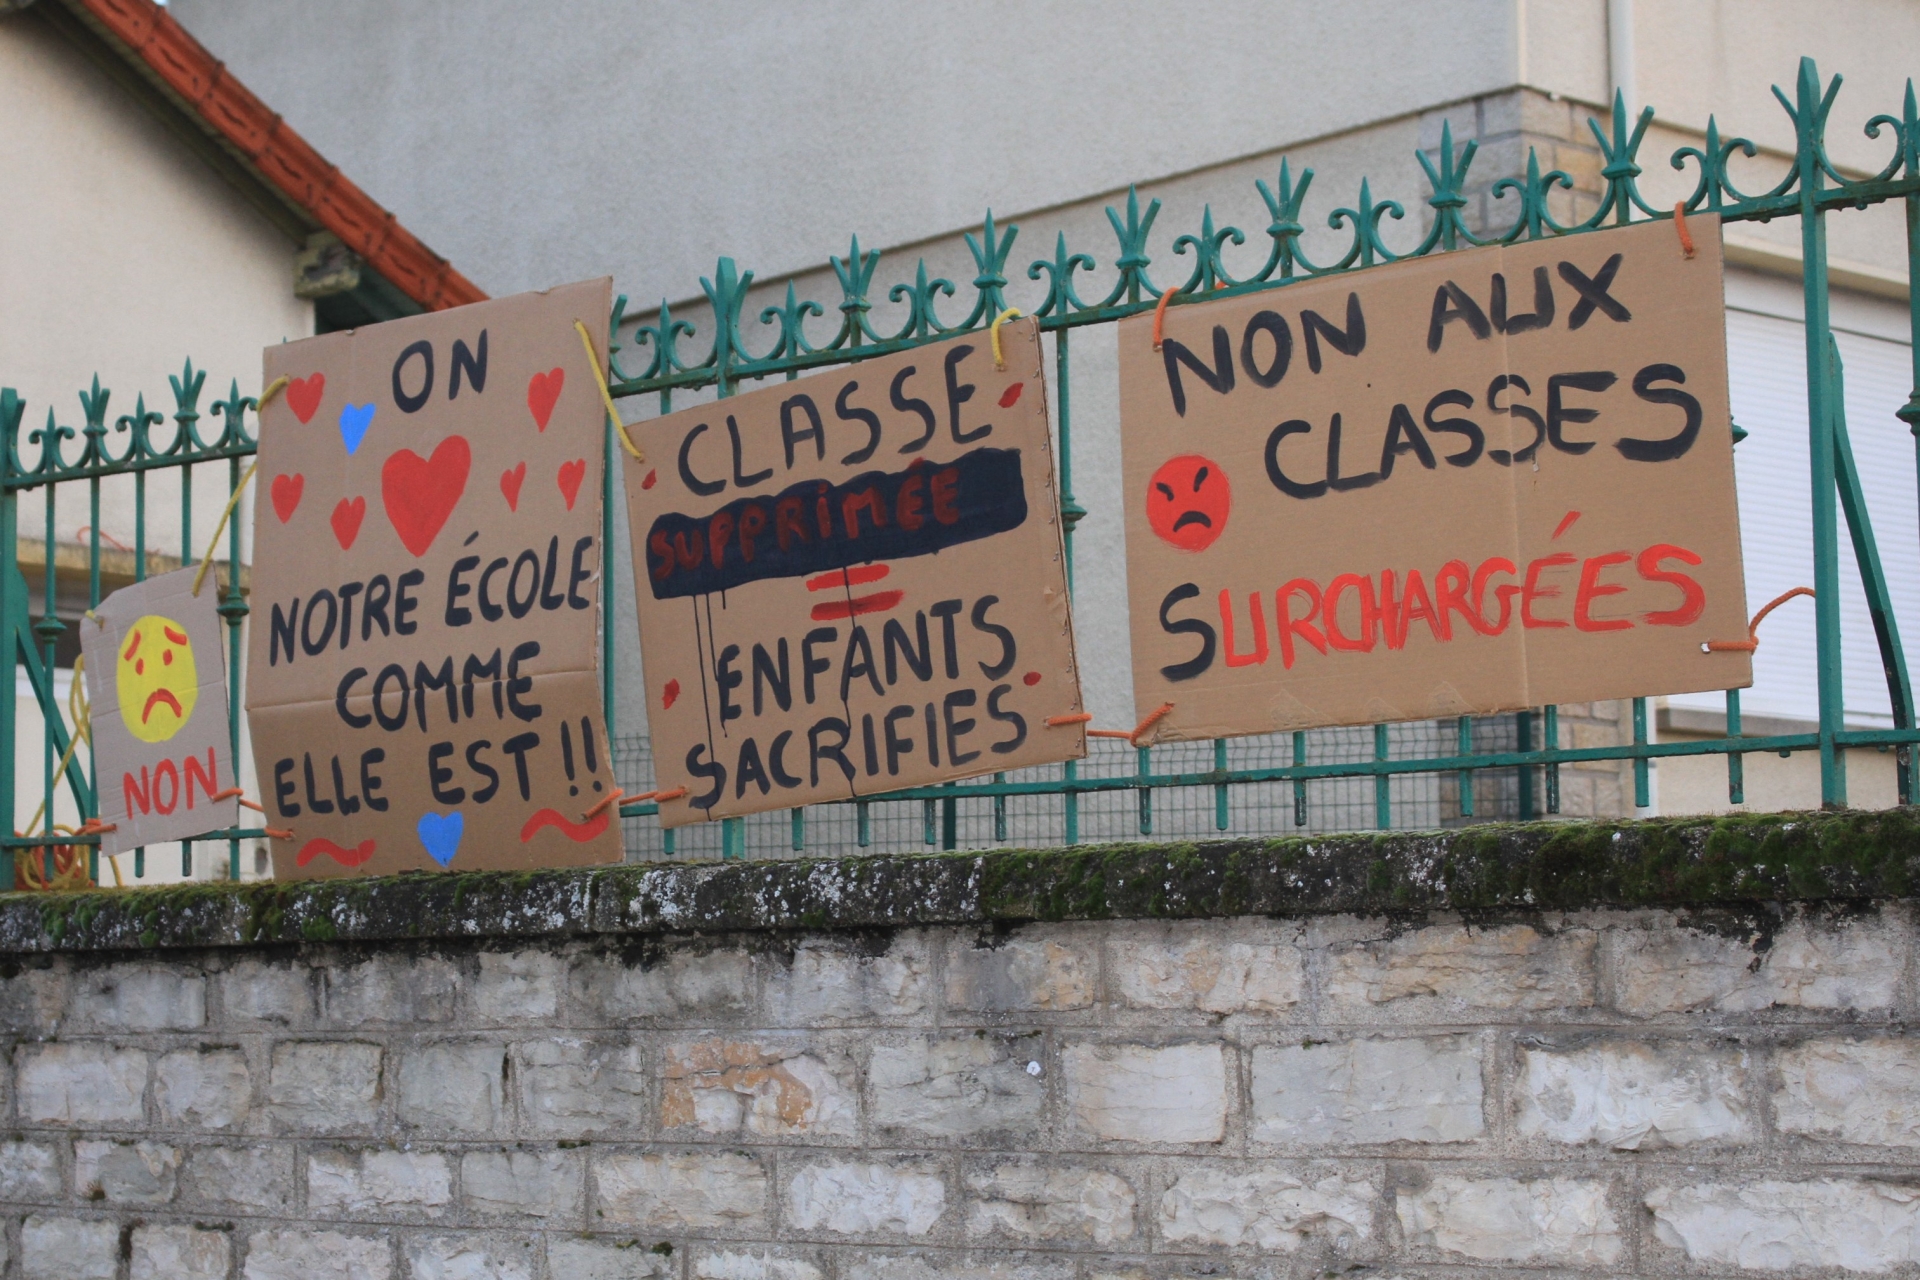 NON
ON
NOTRE ÉCOLE
COMME
ELLE EST !!
CLASSE
SUPPRIMÉE
=
ENFANTS
SACRIFIES
NON AUX
CLASSES
SURCHARGÉES